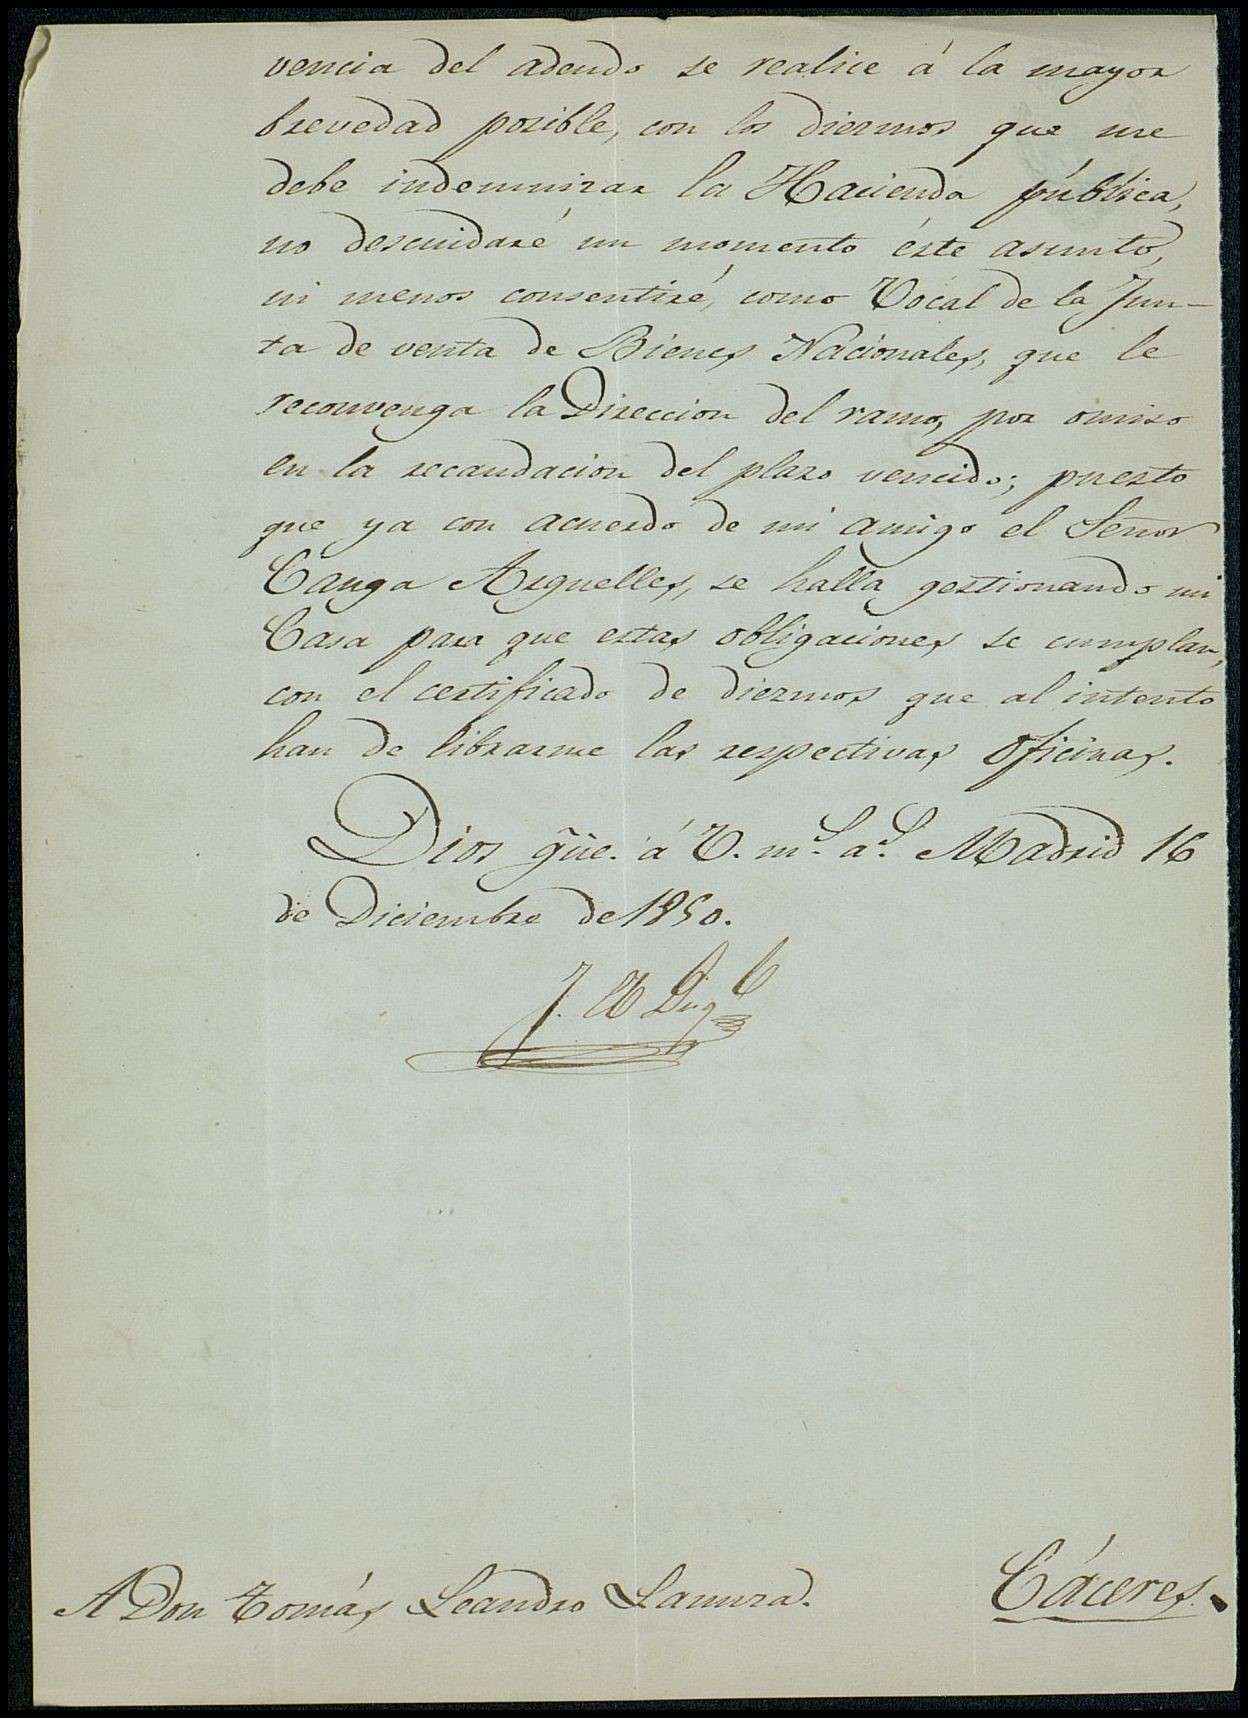 vencia del adeudo se realice á la mayor
brevedad posible, con los diezmos que me
debe indemnizar la Hacienda pública,
no descuidaré un momento éste asunto,
ni menos consentiré, como Vocal de la Jun-
ta de venta de Bienes Nacionales, que le
reconvenga la Direccion del ramo, por omiso
en la recaudacion del plazo vencido; puesto
que ya con acuerdo de mi amigo el Señor
Canga Arguelles, se halla gestionando mi
Casa para que estas obligaciones se cumplan,
con el certificado de diezmos que al intento
han de librarme las respectivas Oficinas.
Dios güe. á V. ms. as. Madrid 16
de Diciembre de 1850.
A Don Tomás Leandro Lamura.
Cáceres.